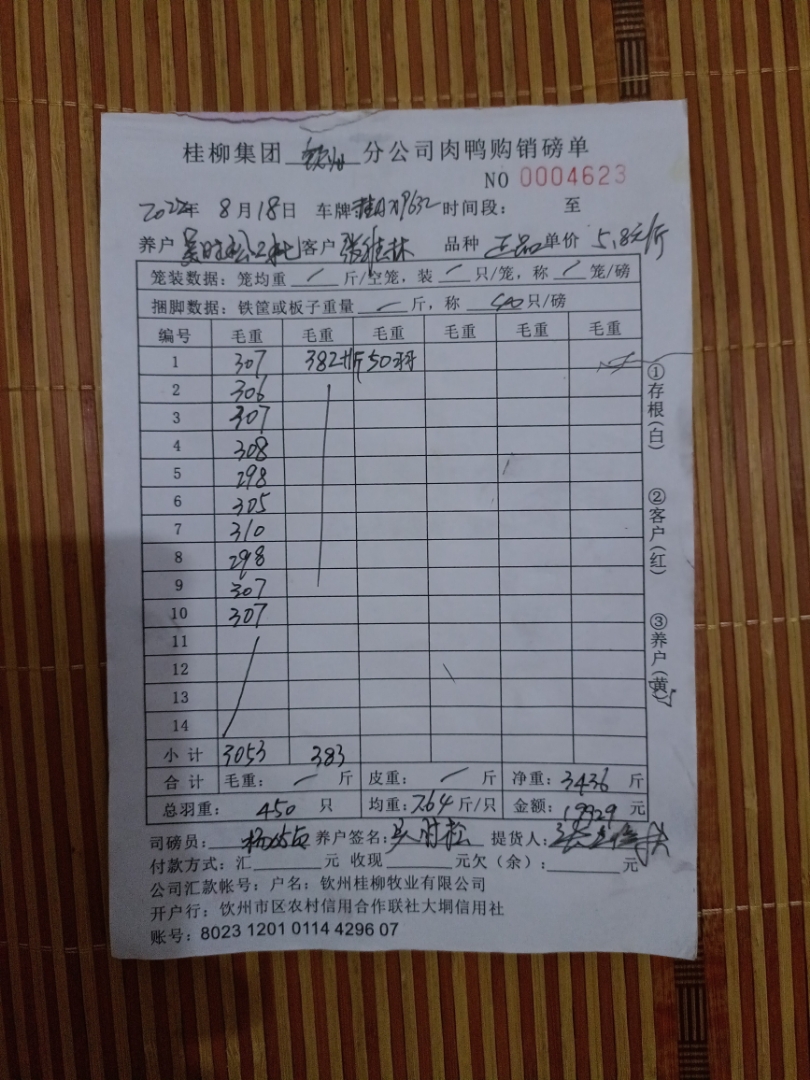 桂柳集团 钦州 分公司肉鸭购销磅单
NO 0004623
2022年 8月18日 车牌 9632 时间段： 至
养户 吴时松 客户 张 林 品种 正品 单价 5.8元/斤
笼装数据：笼均重 / 斤/空笼，装 / 只/笼，称 / 笼/磅
捆脚数据：铁筐或板子重量 / 斤，称 只/磅
编号 毛重 毛重 毛重 毛重 毛重 毛重
1 307 382 斤 50羽
2 306
3 307
4 308
5 298
6 305
7 310
8 298
9 307
10 307
11
12
13
14
小计 3053 383
合计 毛重： / 斤 皮重： / 斤 净重：3436 斤
总羽重： 450 只 均重：7.64 斤/只 金额：19929 元
司磅员： 养户签名：吴时松 提货人：张
付款方式：汇 元 收现 元欠（余）： 元
公司汇款帐号：户名：钦州桂柳牧业有限公司
开户行：钦州市区农村信用合作联社大垌信用社
账号：8023 1201 0114 4296 07
①存根（白）
②客户（红）
③养户（黄）